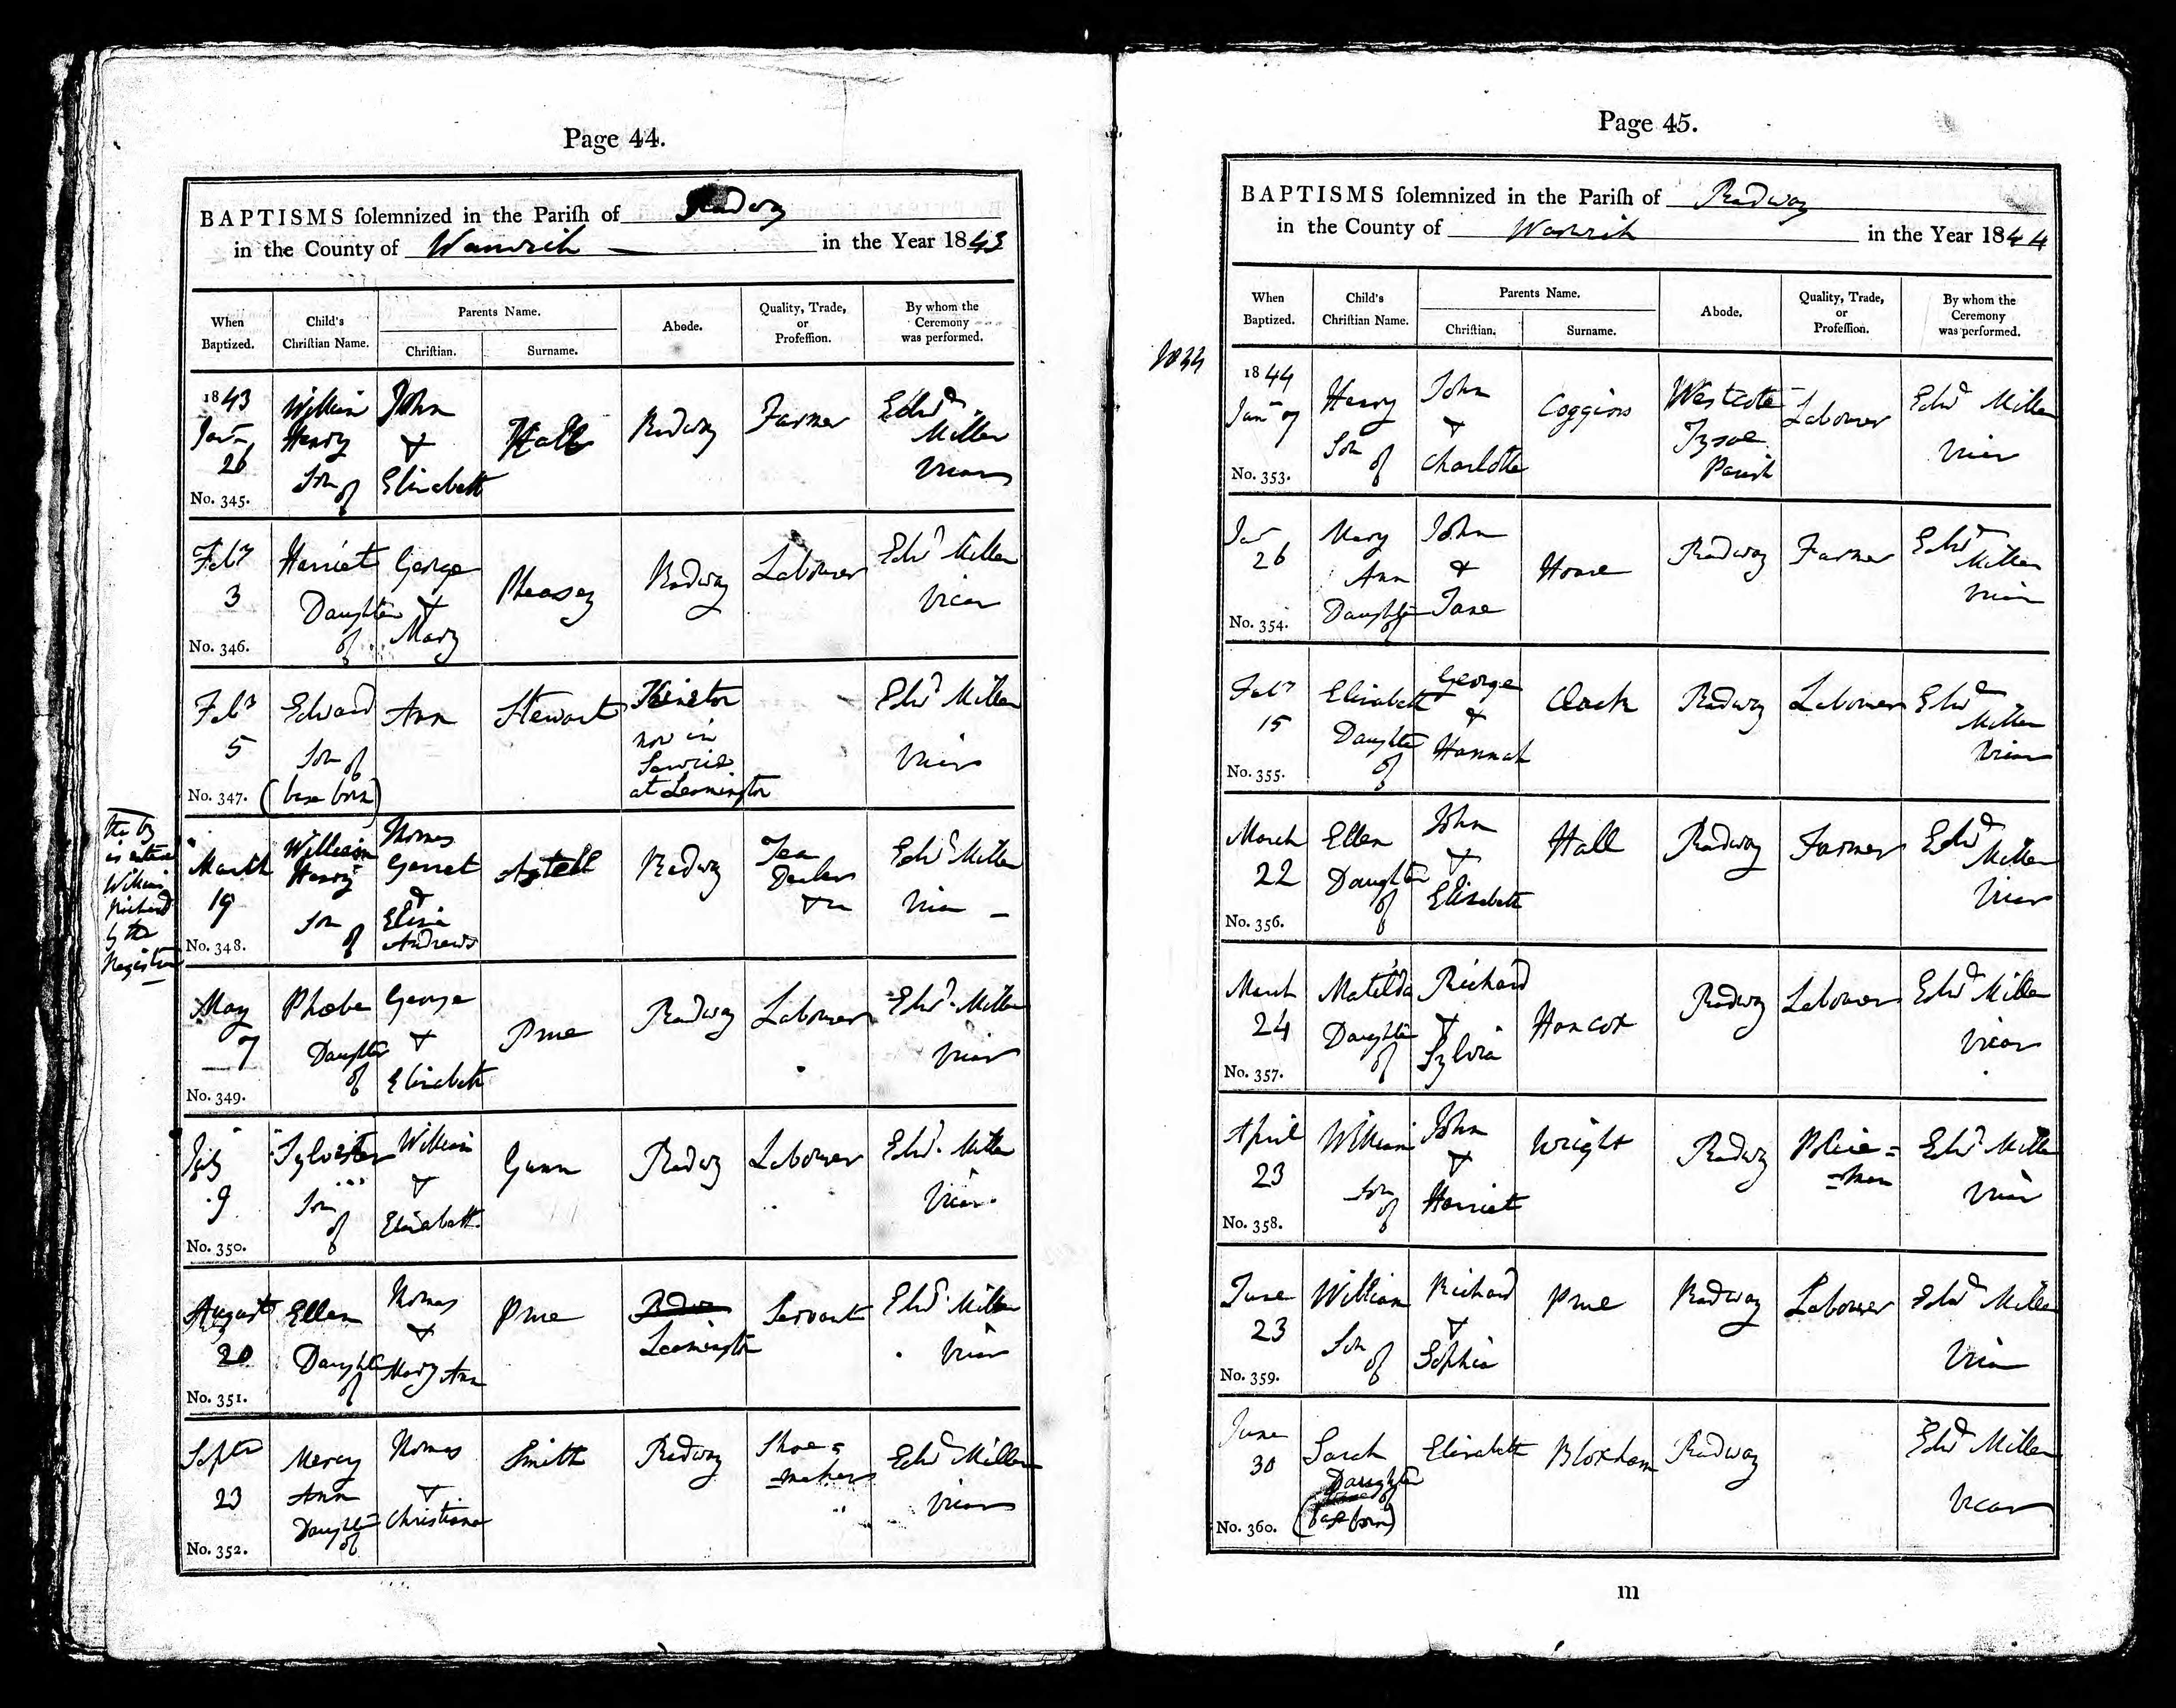 Page 44.
BAPTISMS ſolemnized in the Pariſh of Radway
in the County of Warwick in the Year 1843
When Baptized.
Child's Chriſtian Name.
Parents Name.
Chriſtian.
Surname.
Abode.
Quality, Trade, or Profeſſion.
By whom the Ceremony was performed.
1843
Jany
26
No. 345.
William
Henry
Son
of
John
&
Elizabeth
Hall
Radway
Farmer
Edwd
Miller
Vicar
Feby
3
No. 346.
Harriet
Daughter
of
George
&
Mary
Pheasey
Radway
Labourer
Edwd Miller
Vicar
Feby
5
No. 347.
Edward
Son of
(base born)
Ann
Stewart
Kineton
now in
Service
at Leamington
Edwd Miller
Vicar
the by
is entered
William
Richard
by the
Registrar
March
19
No. 348.
William
Henry
Son
of
Thomas
Garret
&
Eliza
Andrews
Astell
Radway
Tea
Dealer
&c
Edwd Miller
Vicar
May
7
No. 349.
Phoebe
Daughter
of
George
&
Elizabeth
Prue
Radway
Labourer
Edwd. Miller
Vicar
July
9
No. 350.
Sylvester
Son
of
William
&
Elizabeth
Gunn
Radway
Labourer
Edwd. Miller
Vicar
August
20
No. 351.
Ellen
Daughter
of
Thomas
&
Mary Ann
Prue
Radway
Leamington
Servant
Edwd. Miller
Vicar
Septr
23
No. 352.
Mercy
Ann
Daughter
of
Thomas
&
Christiana
Smith
Radway
Shoe=
=maker
Edwd Miller
Vicar
Page 45.
BAPTISMS ſolemnized in the Pariſh of Radway
in the County of Warwick in the Year 1844
When Baptized.
Child's Chriſtian Name.
Parents Name.
Chriſtian.
Surname.
Abode.
Quality, Trade, or Profeſſion.
By whom the Ceremony was performed.
1844
1844
Jany 7
No. 353.
Henry
Son
of
John
&
Charlotte
Coggins
Westcote
Tysoe
Parish
Labourer
Edwd Miller
Vicar
Jany
26
No. 354.
Mary
Ann
Daughter
of
John
&
Jane
House
Radway
Farmer
Edwd
Miller
Vicar
Feby
15
No. 355.
Elizabeth
Daughter
of
George
&
Hannah
Clack
Radway
Labourer
Edwd
Miller
Vicar
March
22
No. 356.
Ellen
Daughter
of
John
&
Elizabeth
Hall
Radway
Farmer
Edwd
Miller
Vicar
March
24
No. 357.
Matilda
Daughter
of
Richard
&
Sylvia
Hancox
Radway
Labourer
Edwd Miller
Vicar
April
23
No. 358.
William
Son
of
John
&
Harriet
Wright
Radway
Police=
=man
Edwd Miller
Vicar
June
23
No. 359.
William
Son
of
Richard
&
Sophia
Prue
Radway
Labourer
Edwd Miller
Vicar
June
30
No. 360.
Sarah
Daughter
of
(base born)
Elizabeth
Bloxham
Radway
Edwd Miller
Vicar
m